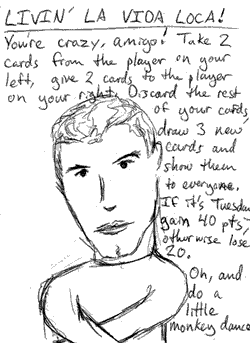 LIVIN' LA VIDA LOCA!
You're crazy, amigo! Take 2
cards from the player on your
left, give 2 cards to the player
on your right. Discard the rest
of your cards,
draw 3 new
cards and
show them
to everyone.
If it's Tuesday
gain 40 pts,
otherwise lose
20.
Oh, and
do a
little
monkey dance